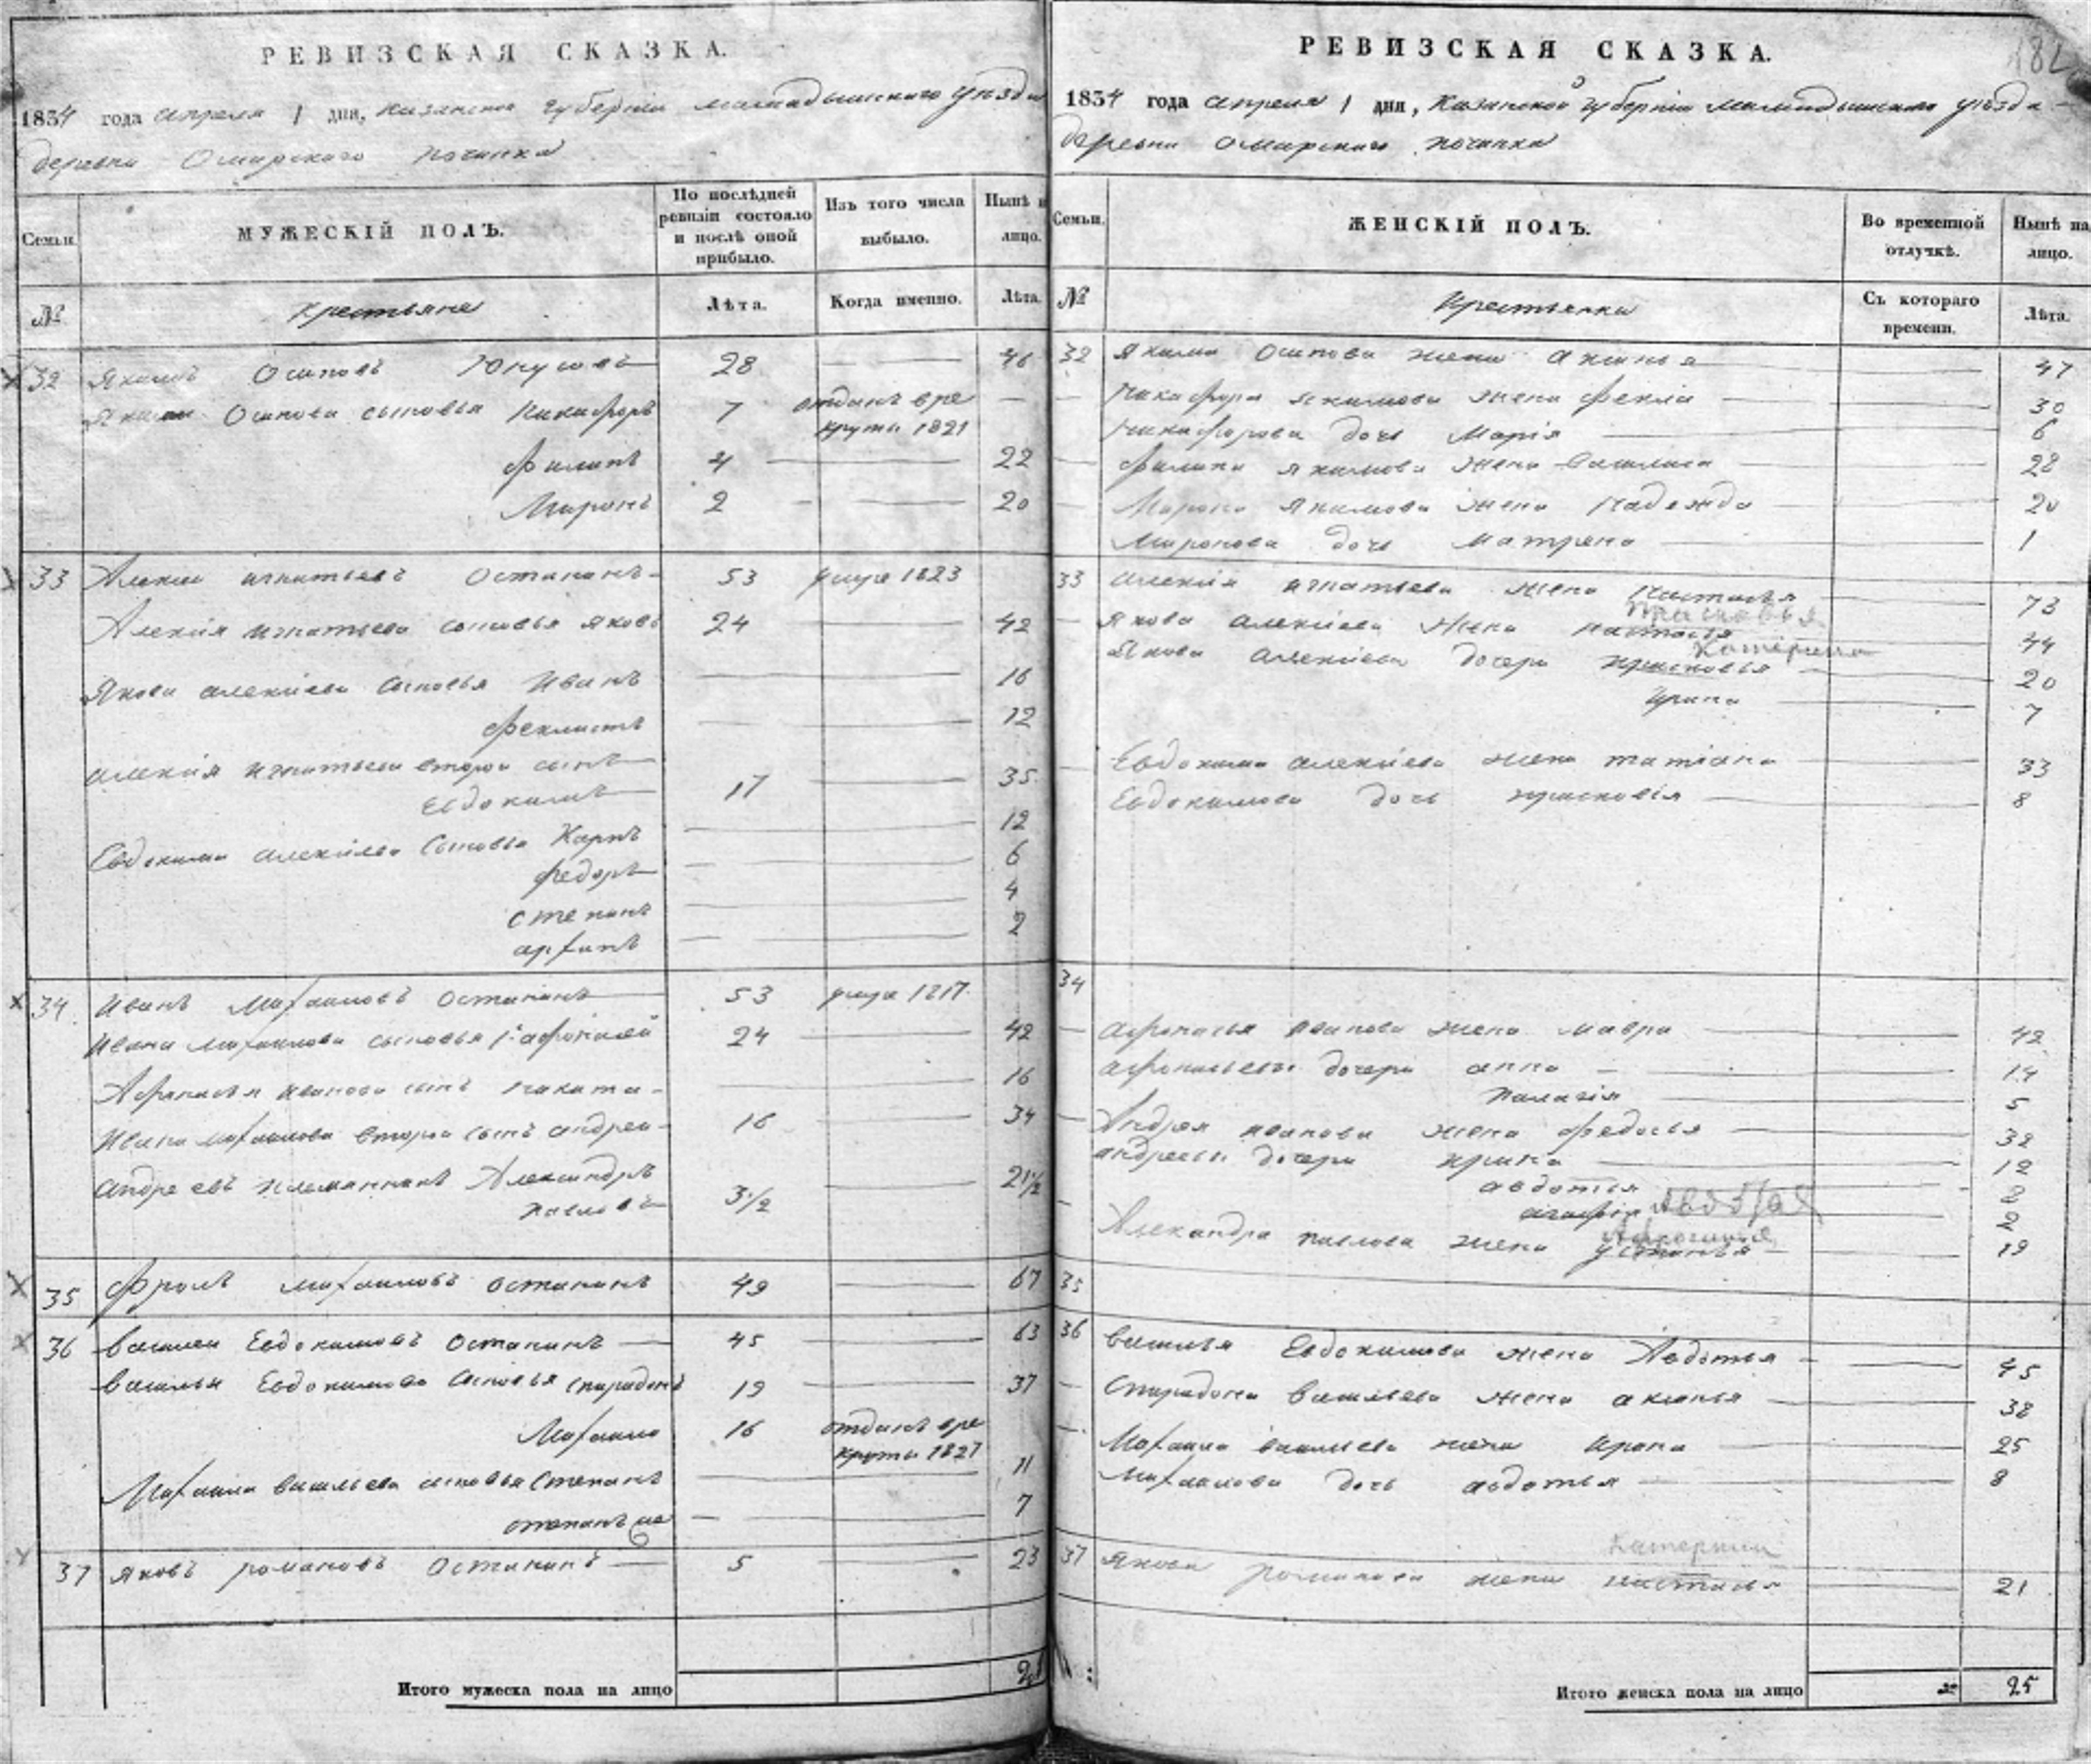 РЕВИЗСКАЯ СКАЗКА.
1834 года апреля 1 дня, Казанской губернiи мамадышскаго уѣзда
деревни Омарскаго починка
Семьи.
МУЖЕСКIЙ ПОЛЪ.
По послѣдней ревизiи состояло и послѣ оной прибыло.
Изъ того числа выбыло.
Нынѣ на лицо.
№
Крестьяне
Лѣта.
Когда именно.
Лѣта.
32 Якимъ Осиповъ Юнусовъ 28 46
Якима Осипова сыновья Никифоръ 7 отданъ в ре
круты 1821
Филипъ 4 22
Миронъ 2 20
33 Алексеи игнатьевъ Останинъ 53 умре 1823
Алексiя игнатьева сыновья яковъ 24 42
Якова алексiева сыновья Иванъ 16
Феклистъ 12
алексiя игнатьева второи сынъ
Евдокимъ 17 35
Евдокима алексiева сыновья Карпъ 12
Федоръ 6
степанъ 4
архипъ 2
34 Иванъ Михаиловъ Останинъ 53 умре 1817
Ивана михаилова сыновья 1й афонасей 24 42
Афонасья иванова сынъ никита 16
Ивана михаилова второи сынъ андреи 16 34
андреевъ племянникъ Александръ
павловъ 3 1/2 21 1/2
35 Фролъ михаиловъ останинъ 49 67
36 василеи Евдокимовъ Останинъ 45 63
василья Евдокимова сыновья спиридонъ 19 37
Михаило 16 отданъ в ре
круты 1827
Михаила васильева сыновья Степанъ 11
степанъ же 7
37 яковъ романовъ Останинъ 5 23
Итого мужеска пола на лицо
РЕВИЗСКАЯ СКАЗКА.
1834 года апреля 1 дня, Казанской губернiи мамадышскаго уѣзда
деревни омарскаго починка
Семьи.
ЖЕНСКIЙ ПОЛЪ.
Во временной отлучкѣ.
Нынѣ на лицо.
№
Крестьянки
Съ котораго времени.
Лѣта.
32 Якима Осипова жена аксинья 47
Никифора якимова жена фекла 30
Никифорова дочь Марiя 6
Филипа якимова жена василиса 28
Мирона якимова жена надежда 20
Миронова дочь матрена 1
33 алексiя игнатьева жена настасья 73
Прасковья
Якова алексiева жена настасья 44
Катерина
Якова алексiева дочери прасковья 20
Ирина 7
Евдокима алексiева жена татiана 33
Евдокимова дочь прасковiя 8
34
афонасья иванова жена мавра 42
афонасьевы дочери анна 14
палагiя 5
Андрея иванова жена федосья 32
андреевы дочери ирина 12
авдотья 8
агафiя 2
Александра павлова жена устинья 19
35
36 василья Евдокимова жена Авдотья 45
Спиридона васильева жена аксинья 38
Михаила васильева жена ирина 25
Михаилова дочь авдотья 8
Катерина
37 якова романова жена настасья 21
Итого женска пола на лицо 25